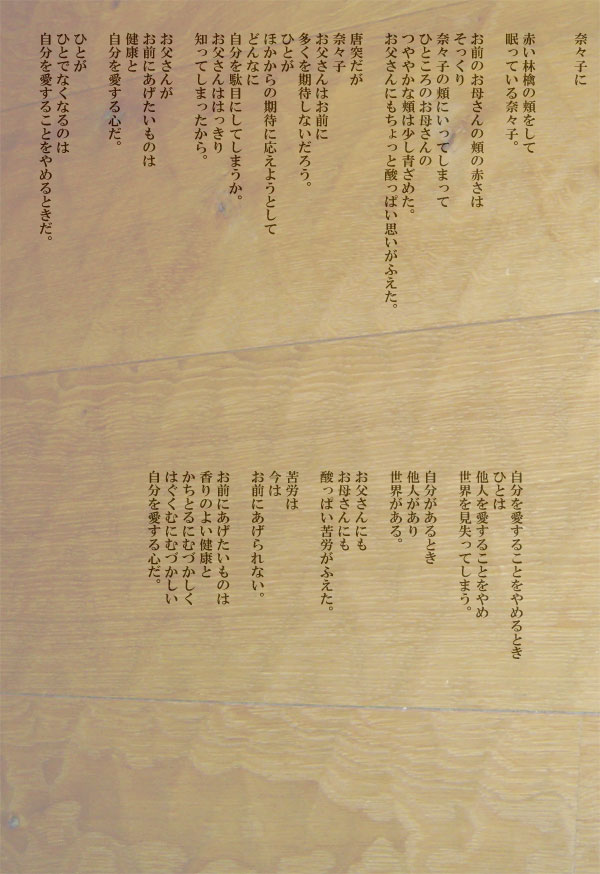 奈々子に
赤い林檎の頬をして
眠っている奈々子。
お前のお母さんの頬の赤さは
そっくり
奈々子の頬にいってしまって
ひところのお母さんの
つややかな頬は少し青ざめた。
お父さんにもちょっと酸っぱい思いがふえた。
唐突だが
奈々子
お父さんはお前に
多くを期待しないだろう。
ひとが
ほかからの期待に応えようとして
どんなに
自分を駄目にしてしまうか。
お父さんははっきり
知ってしまったから。
お父さんが
お前にあげたいものは
健康と
自分を愛する心だ。
ひとが
ひとでなくなるのは
自分を愛することをやめるときだ。
自分を愛することをやめるとき
ひとは
他人を愛することをやめ
世界を見失ってしまう。
自分があるとき
他人があり
世界がある。
お父さんにも
お母さんにも
酸っぱい苦労がふえた。
苦労は
今は
お前にあげられない。
お前にあげたいものは
香りのよい健康と
かちとるにむづかしく
はぐくむにむづかしい
自分を愛する心だ。